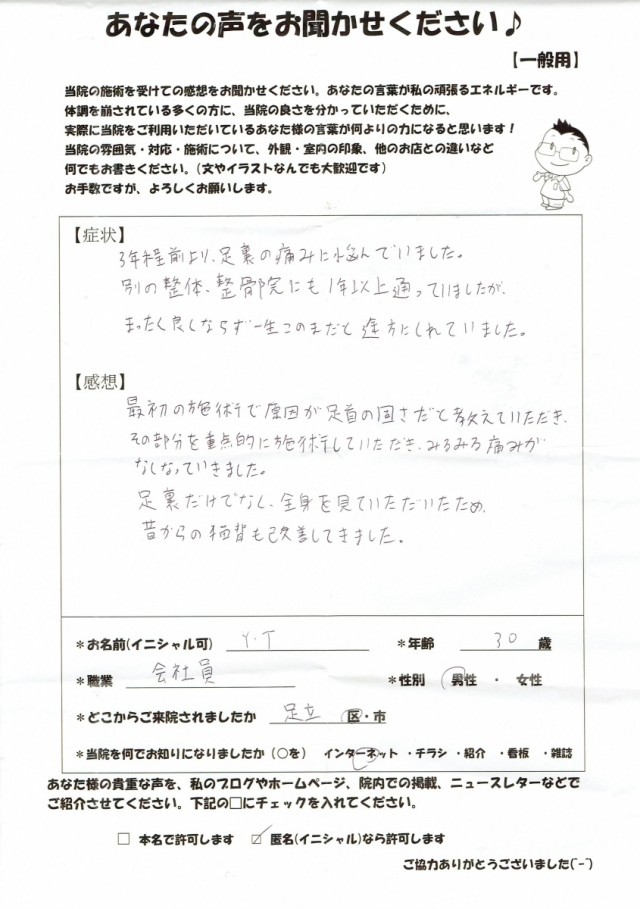 あなたの声をお聞かせください♪
【一般用】
当院の施術を受けての感想をお聞かせください。あなたの言葉が私の頑張るエネルギーです。
体調を崩されている多くの方に、当院の良さを分かっていただくために、
実際に当院をご利用いただいているあなた様の言葉が何よりの力になると思います！
当院の雰囲気・対応・施術について、外観・室内の印象、他のお店との違いなど
何でもお書きください。(文やイラストなんでも大歓迎です)
お手数ですが、よろしくお願いします。
【症状】
3年程前より、足裏の痛みに悩んでいました。
別の整体、整骨院にも1年以上通っていましたが、
まったく良くならず一生このままだと途方にくれていました。
【感想】
最初の施術で原因が足首の固さだと教えていただき、
その部分を重点的に施術していただき、みるみる痛みが
なくなっていきました。
足裏だけでなく、全身を見ていただいたため、
昔からの猫背も改善してきました。
＊お名前(イニシャル可) Y.T ＊年齢 30 歳
＊職業 会社員 ＊性別 男性 ・ 女性
＊どこからご来院されましたか 足立 区・市
＊当院を何でお知りになりましたか（○を） インターネット ・チラシ ・紹介 ・看板 ・雑誌
あなた様の貴重な声を、私のブログやホームページ、院内での掲載、ニュースレターなどで
ご紹介させてください。下記の□にチェックを入れてください。
□ 本名で許可します ☑ 匿名(イニシャル)なら許可します
ご協力ありがとうございました(^-^)